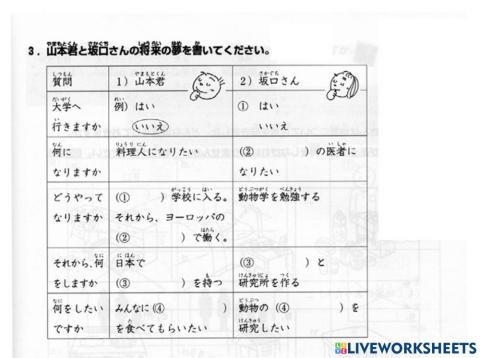 3．山本君と坂口さんの将来の夢を書いてください。
質問 1）山本君 2）坂口さん
大学へ 例）はい ① はい
行きますか いいえ いいえ
何に 料理人になりたい （② ）の医者に
なりますか なりたい
どうやって （① ）学校に入る。 動物学を勉強する
なりますか それから、ヨーロッパの
（② ）で働く。
それから、何 日本で （③ ）と
をしますか （③ ）を持つ 研究所を作る
何をしたい みんなに（④ ） 動物の（④ ）を
ですか を食べてもらいたい 研究したい
LIVEWORKSHEETS